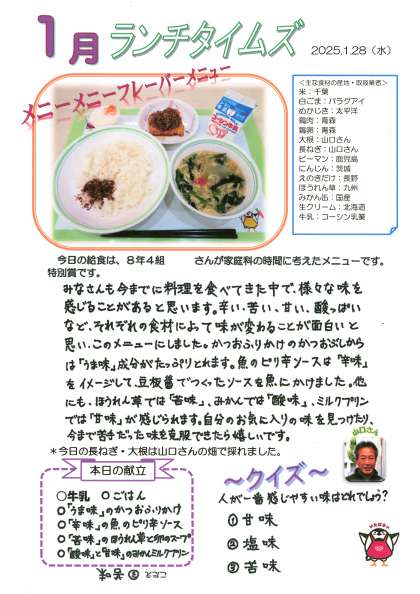 1月 ランチタイムズ
2025.1.28（水）
メニーメニーフレーバーメニュー
＜主な食材の産地・取扱業者＞
米：千葉
白ごま：パラグアイ
めかじき：太平洋
鶏肉：青森
鶏卵：青森
大根：山口さん
長ねぎ：山口さん
ピーマン：鹿児島
にんじん：茨城
えのきだけ：長野
ほうれん草：九州
みかん缶：国産
生クリーム：北海道
牛乳：コーシン乳業
今日の給食は、８年４組　　さんが家庭科の時間に考えたメニューです。
特別賞です。
みなさんも今までに料理を食べてきた中で、様々な味を
感じることがあると思います。辛い、苦い、甘い、酸っぱい
など、それぞれの食材によって味が変わることが面白いと
思い、このメニューにしました。かつおふりかけのかつおぶしから
は「うま味」成分がたっぷりとれます。魚のピリ辛ソースは「辛味」
をイメージして、豆板醤でつくったソースを魚にかけました。他
にも、ほうれん草では「苦味」、みかんでは「酸味」、ミルクプリン
では「甘味」が感じられます。自分のお気に入りの味を見つけたり、
今まで苦手だった味を克服できたら嬉しいです。
＊今日の長ねぎ・大根は山口さんの畑で採れました。
山口さん
本日の献立
○牛乳 ○ごはん
○「うま味」のかつおふりかけ
○「辛味」の魚のピリ辛ソース
○「苦味」のほうれん草と卵のスープ
○「酸味」と「甘味」のみかんミルクプリン
～クイズ～
人が一番感じやすい味はどれでしょう？
①甘味
②塩味
③苦味
こたえ ③苦味